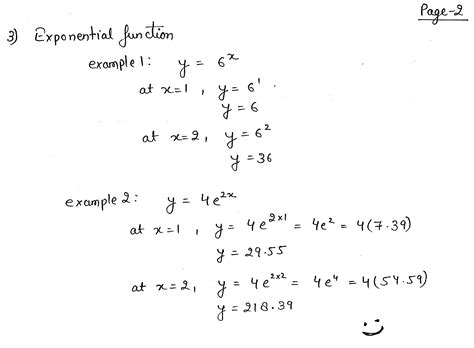 Page-2
3) Exponential function
example 1: y = 6^x
at x=1, y = 6^1
y = 6
at x=2, y = 6^2
y = 36
example 2: y = 4e^{2x}
at x=1, y = 4e^{2×1} = 4e^2 = 4(7.39)
y = 29.55
at x=2, y = 4e^{2×2} = 4e^4 = 4(54.59)
y = 218.39